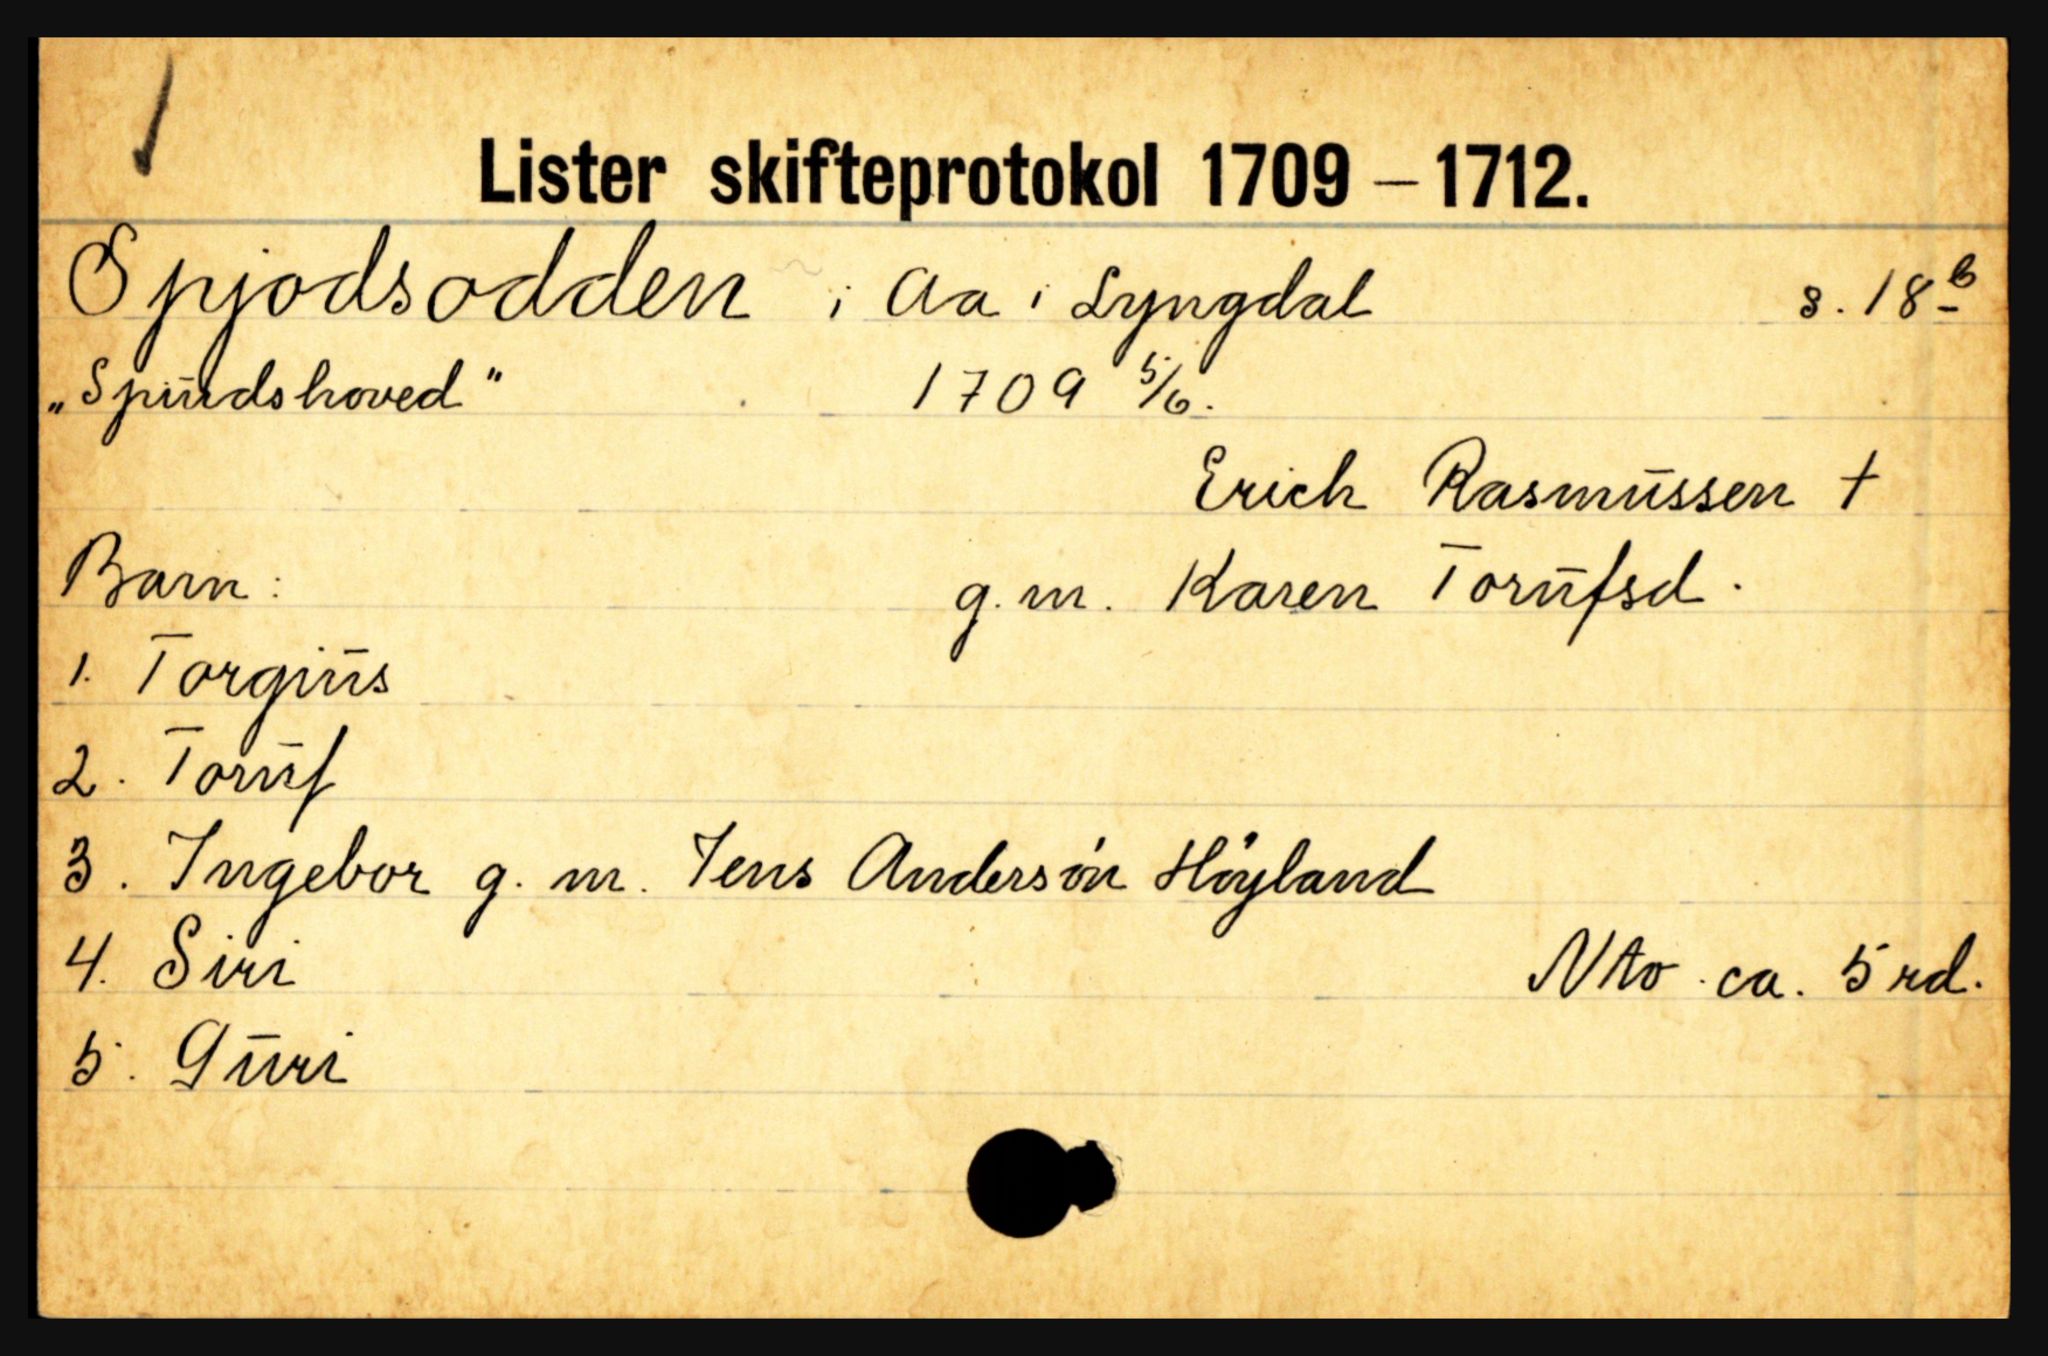 Lister skifteprotokol 1709 – 1712.
Spjodsodden i Aa i Lyngdal s. 18b
„Spiudshoved" 1709 5/6.
Erich Rasmussen †
Barn: g. m. Karen Torufsd.
1. Torgius
2. Toruf
3. Ingebor g. m. Jens Andersøn Høyland
4. Siri Nto ca. 5 rd.
5. Guri